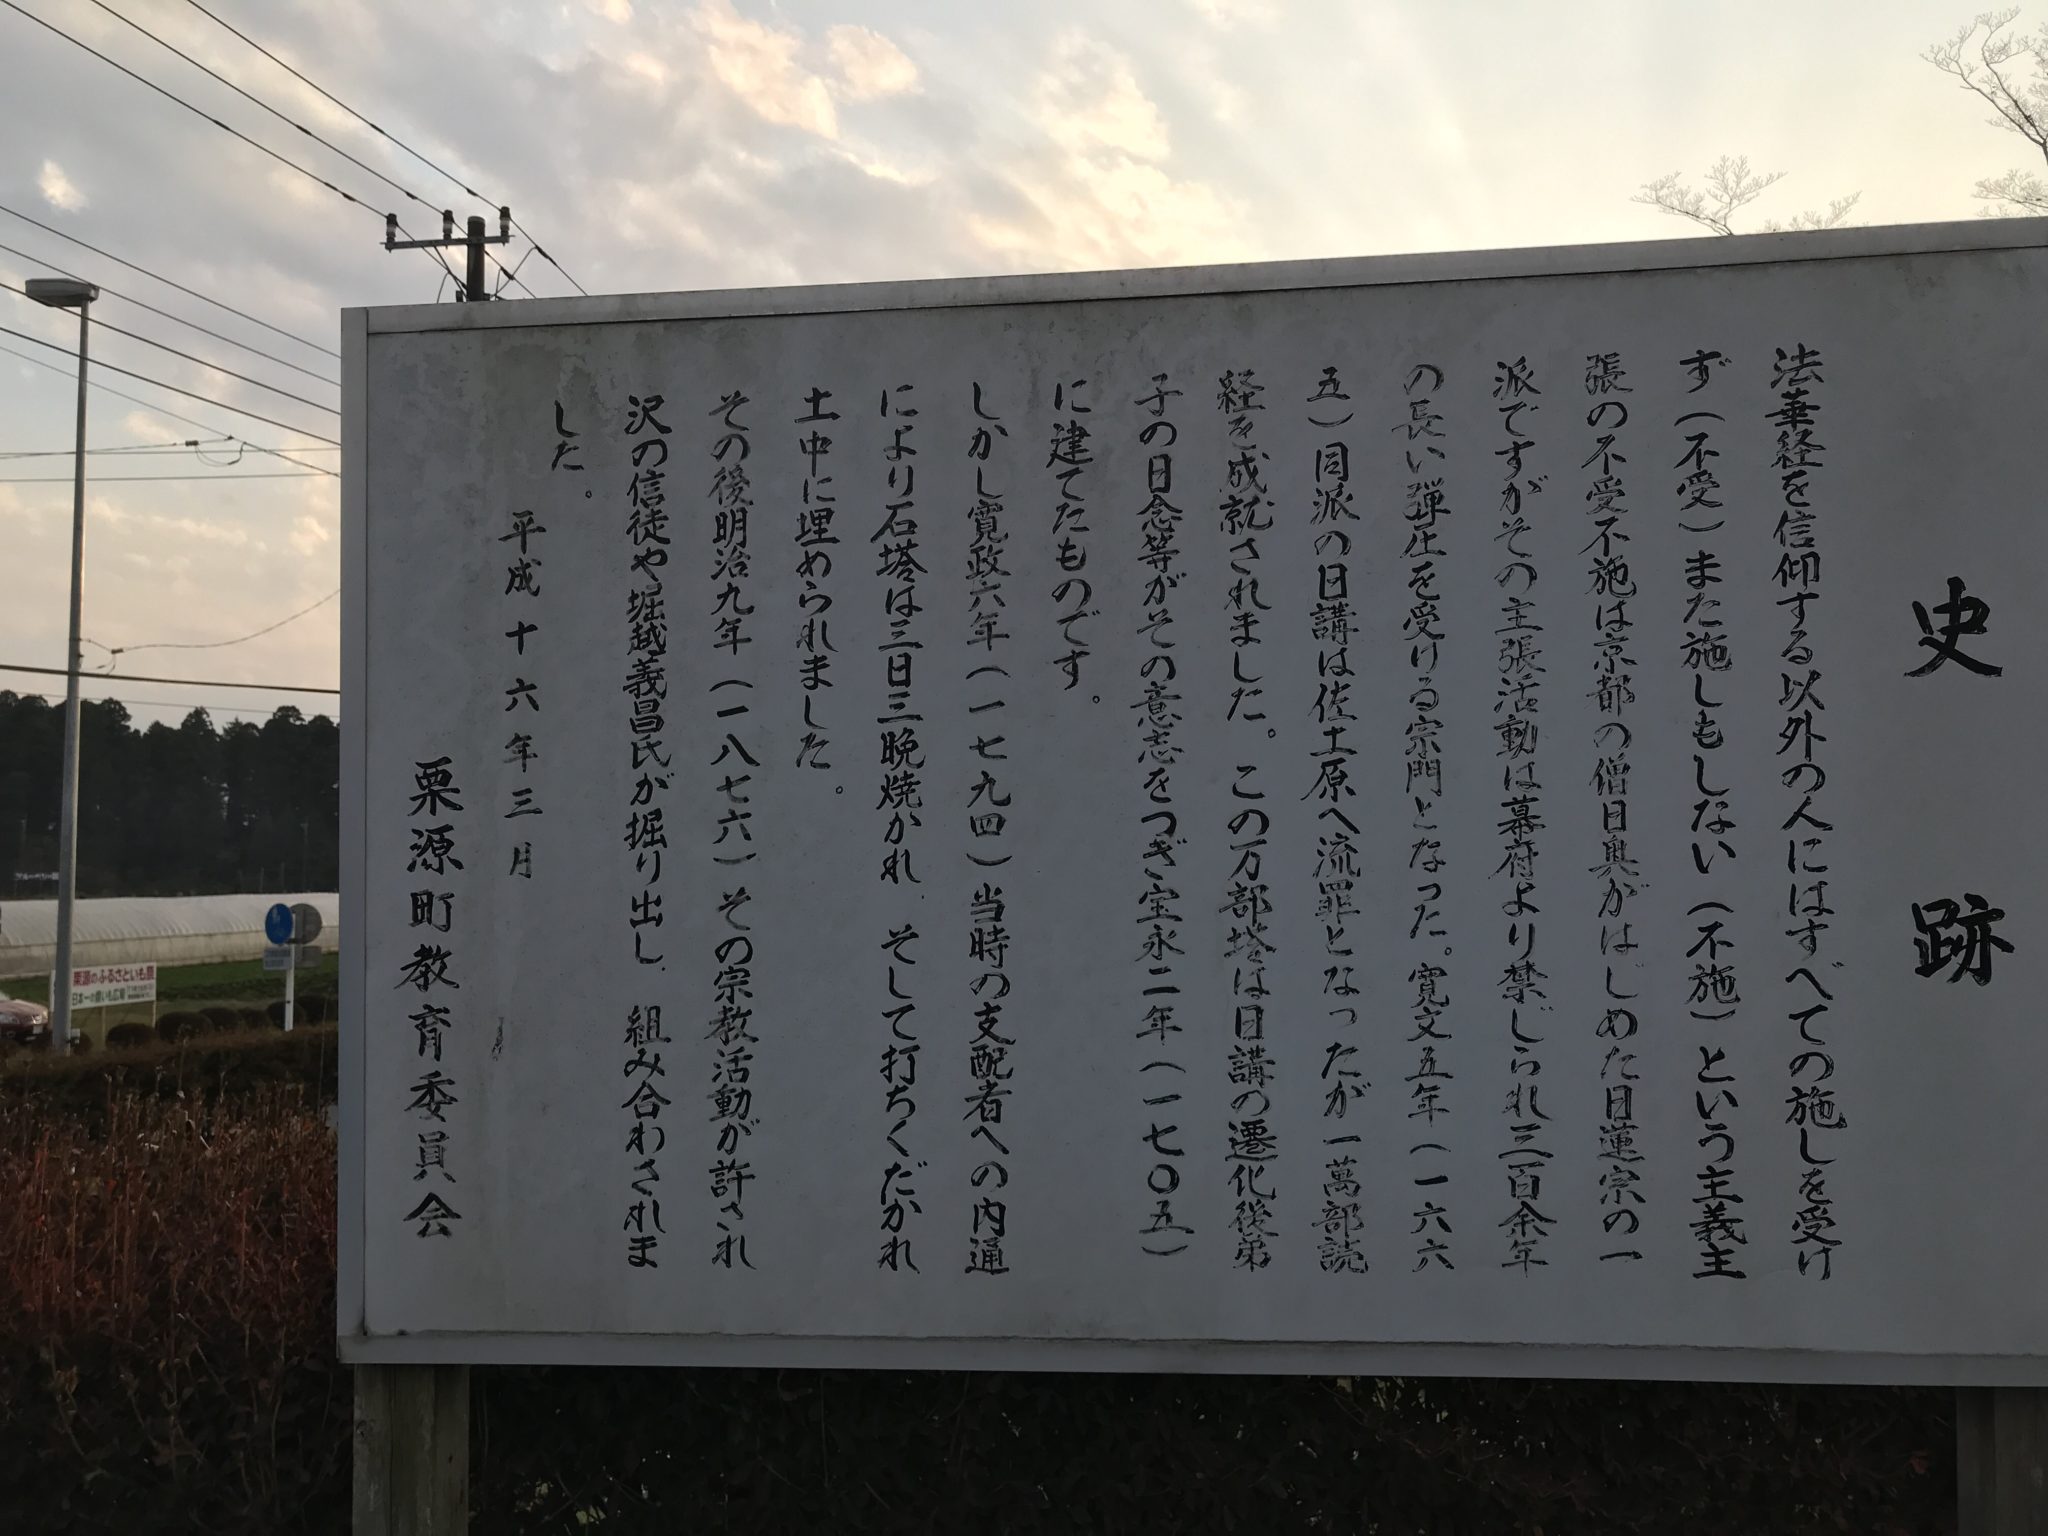 史跡
法華経を信仰する以外の人にはすべての施しを受け
ず(不受)また施しもしない(不施)という主義主
張の不受不施は京都の僧日奥がはじめた日蓮宗の一
派ですがその主張活動は幕府より禁じられ三百余年
の長い弾圧を受ける宗門となった。寛文五年(一六六
五)同派の日講は佐土原へ流罪となったが一萬部読
経を成就されました。この万部塔は日講の遷化後弟
子の日念等がその意志をつぎ宝永二年(一七〇五)
に建てたものです。
しかし寛政六年(一七九四)当時の支配者への内通
により石塔は三日三晩焼かれ、そして打ちくだかれ
土中に埋められました。
その後明治九年(一八七六)その宗教活動が許され
沢の信徒や堀越義昌氏が掘り出し、組み合わされま
した。
平成十六年三月
栗源町教育委員会
栗源のふるさといも農
日本一の焼いも広場